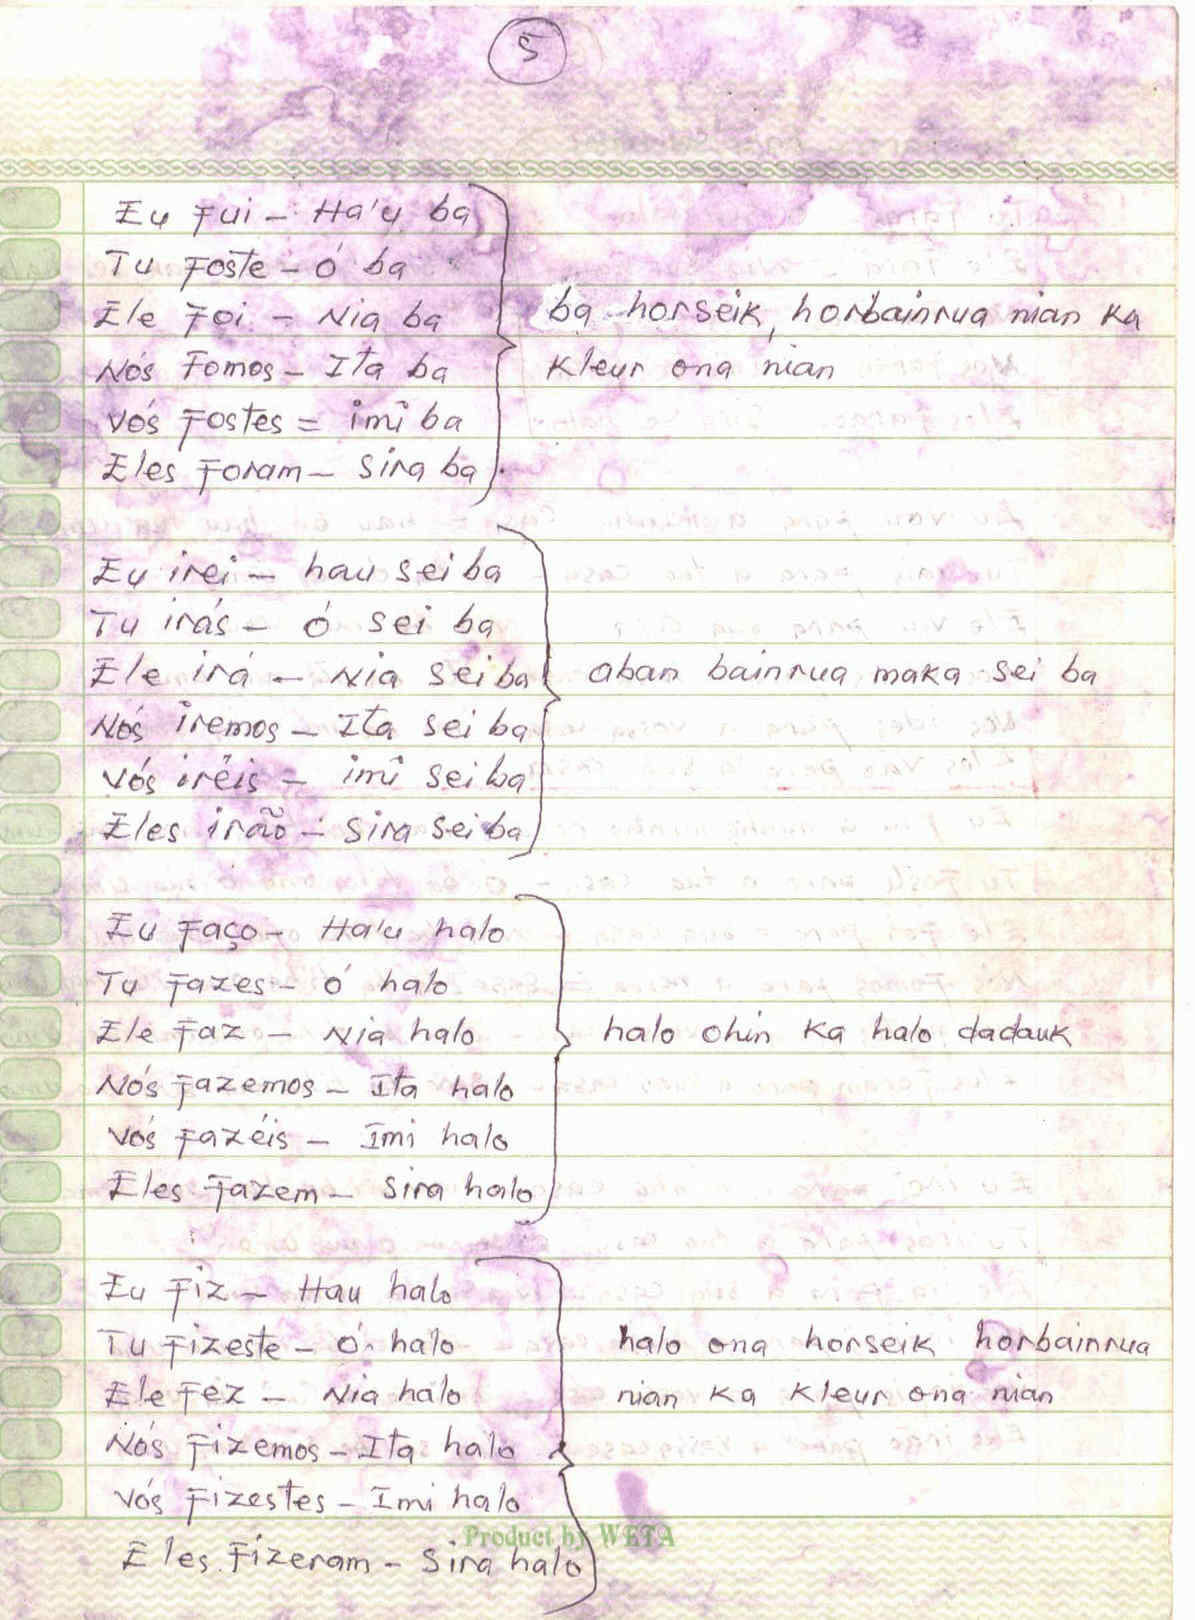 5
Eu Fui - Ha'u ba
Tu Foste - Ó ba
Ele Foi - Nia ba
ba horseik, horbainrua nian ka
Nós Fomos - Ita ba
kleur ona nian
Vós Fostes = imi ba
Eles Foram - Sira ba
Eu irei - hau sei ba
Tu irás - Ó sei ba
Ele irá - Nia sei ba
aban bainrua maka sei ba
Nós iremos - Ita sei ba
Vós ireis - imi sei ba
Eles irão - Sira sei ba
Eu Faço - Ha'u halo
Tu Fazes - Ó halo
Ele Faz - Nia halo
halo ohin ka halo dadauk
Nós Fazemos - Ita halo
Vós Fazéis - Imi halo
Eles Fazem - Sira halo
Eu Fiz - Hau halo
Tu Fizeste - Ó halo
halo ona horseik horbainrua
Ele Fez - Nia halo
nian ka kleur ona nian
Nós Fizemos - Ita halo
Vós Fizestes - Imi halo
Product by WETA
Eles Fizeram - Sira halo